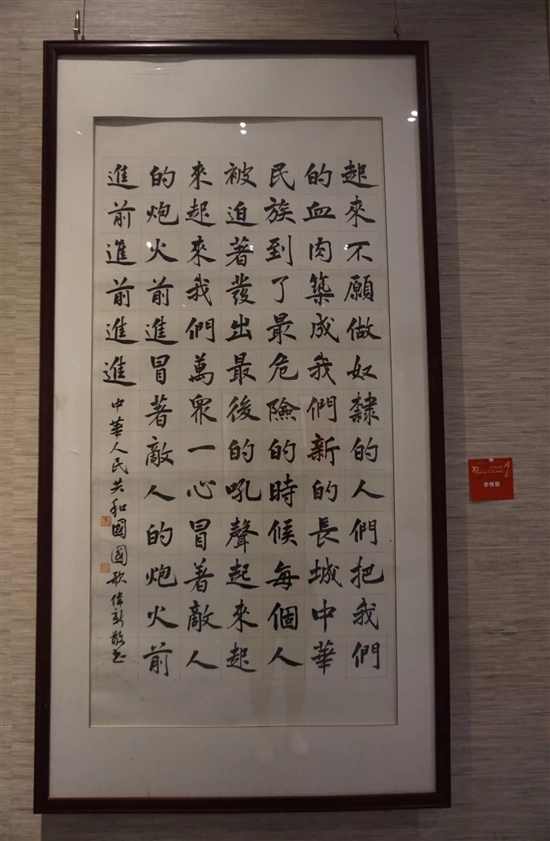 起來不願做奴隸的人們把我們
的血肉築成我們新的長城中華
民族到了最危險的時候每個人
被迫著發出最後的吼聲起來起
來起來我們萬眾一心冒著敵人
的炮火前進冒著敵人的炮火前
進前進前進進
中華人民共和國國歌偉新敬书